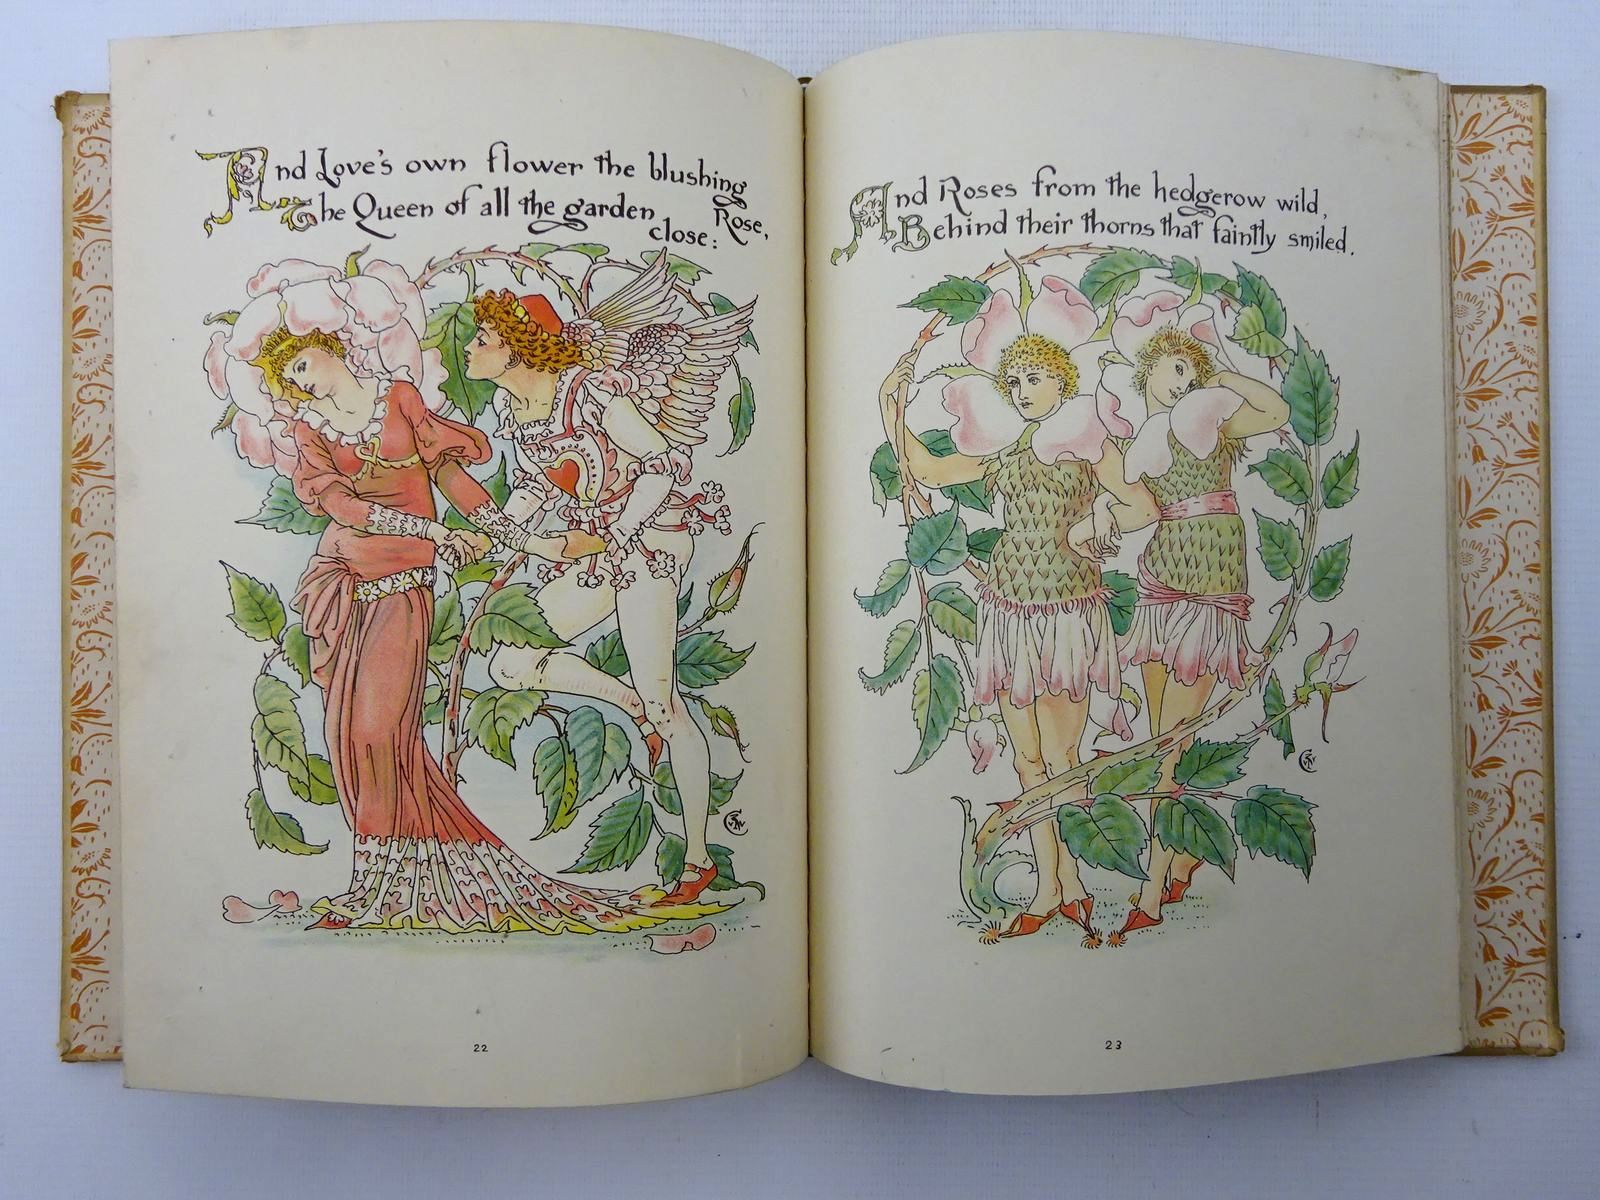 And Love's own flower the blushing
Rose,
The Queen of all the garden
close:
22
And Roses from the hedgerow wild,
Behind their thorns that faintly smiled.
23